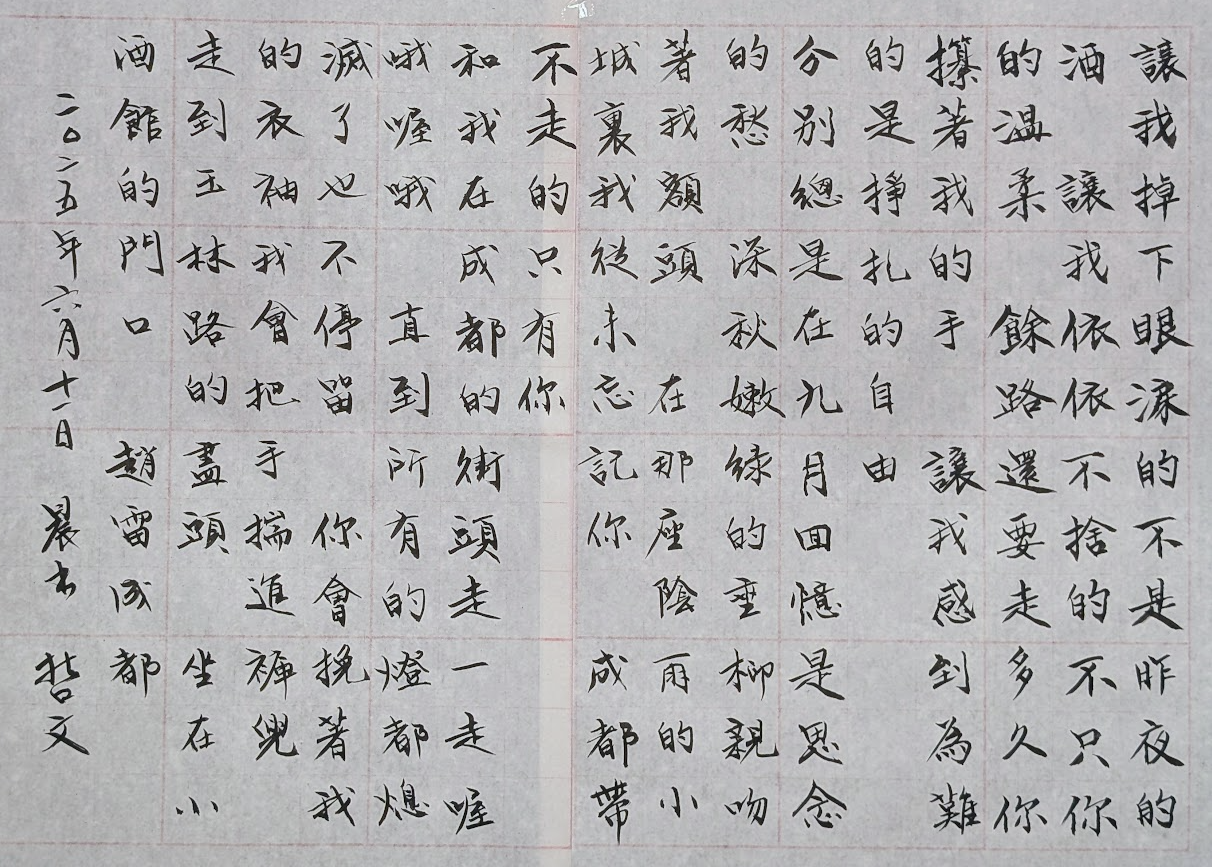 讓我掉下眼淚的不是昨夜的
酒 讓我依依不捨的不只你
的溫柔 餘路還要走多久你
攥著我的手 讓我感到為難
的是掙扎的自由
分別總是在九月回憶是思念
的愁 深秋嫩綠的垂柳親吻
著我額頭 在那座陰雨的小
城裏我從未忘記你 成都帶
不走的只有你
和我在成都的街頭走一走喔
哦喔哦 直到所有的燈都熄
滅了也不停留 你會挽著我
的衣袖我會把手揣進褲兜
走到玉林路的盡頭 坐在小
酒館的門口 趙雷成都
二〇二五年六月十一日 晨書 哲文